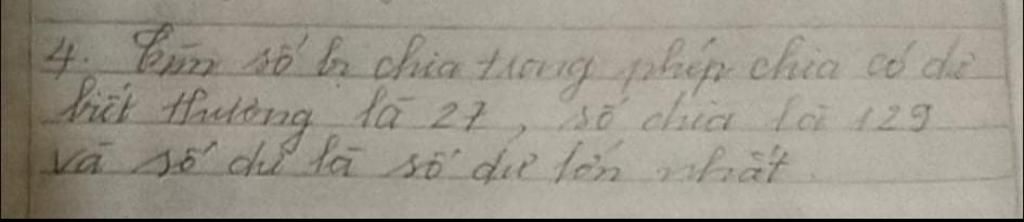 4. Tìm số bị chia trong phép chia có dư
biết thương là 27, số chia là 129
và số dư là số dư lớn nhất.